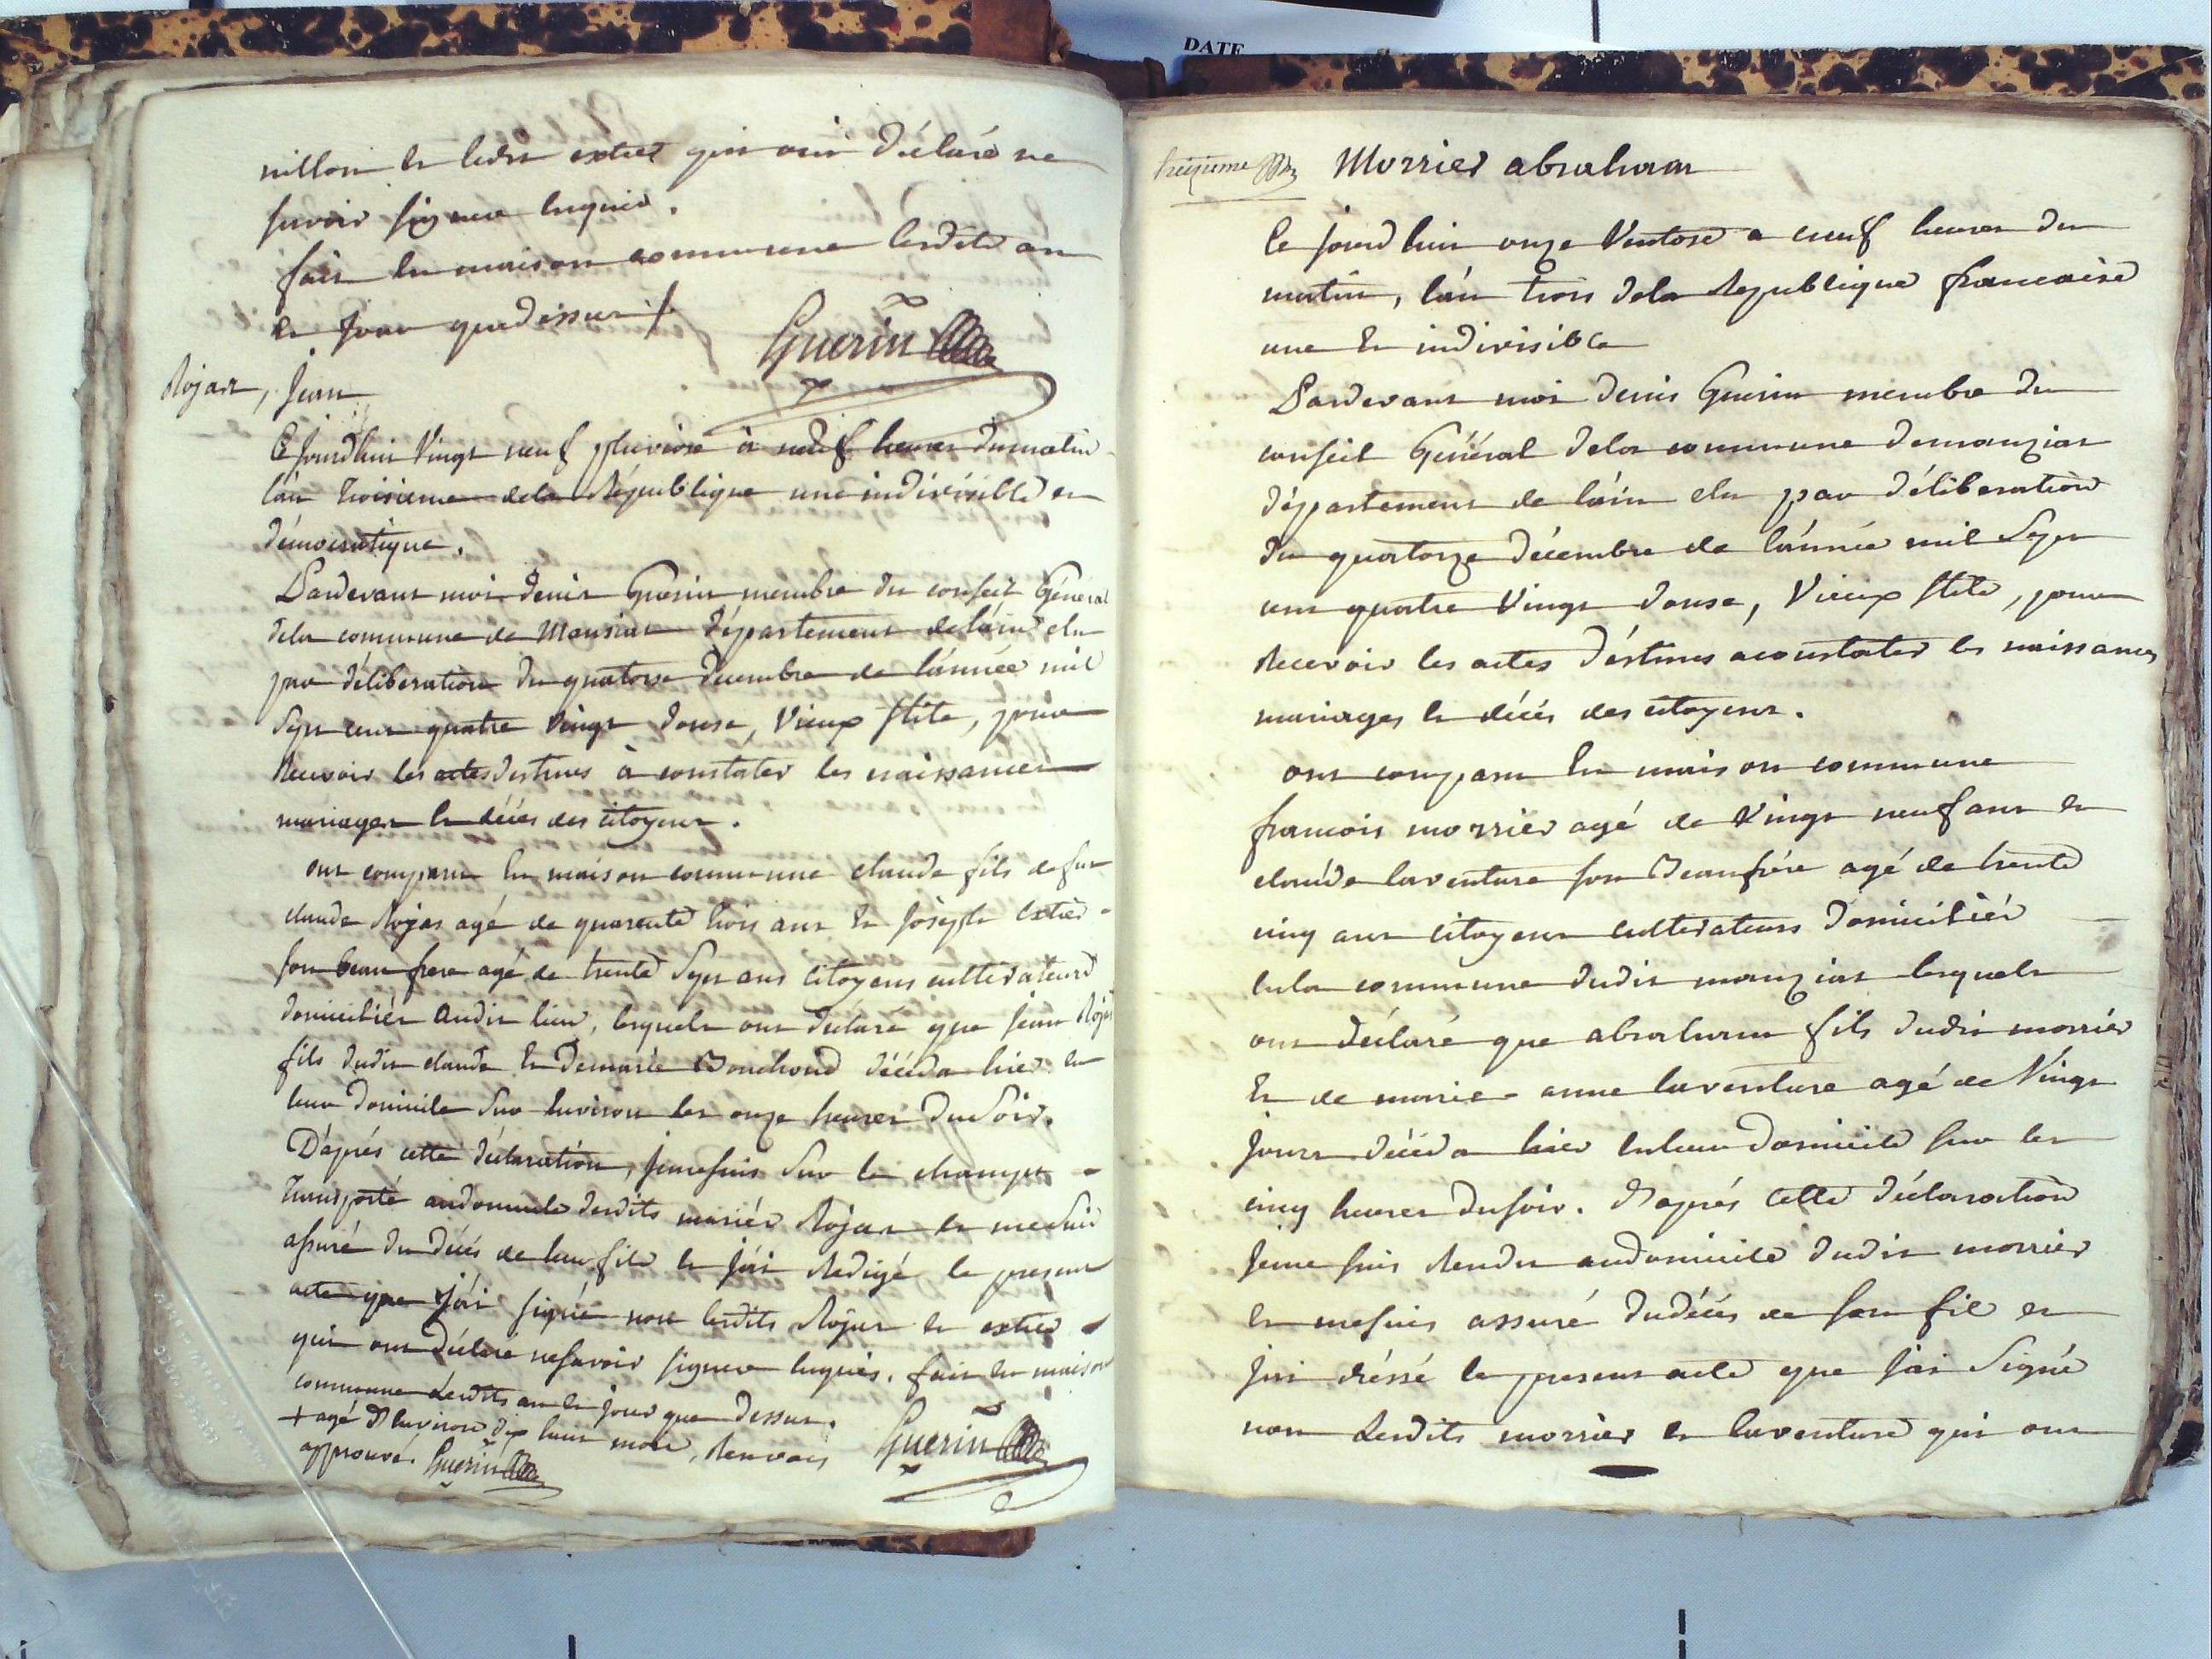 DATE
millon et ledit extier qui ont déclaré ne
savoir signer enquis.
fait en maison commune lesdits an
et jour que dessus
Guerin
Rojat, Jean
Ce jourd'huy vingt neuf pluviose à neuf heures du matin
l'an troisieme de la République une indivisible et
démocratique.
Pardevant moi denis Guerin membre du conseil Général
de la commune de Mansiat département de l'ain elu
par déliberation du quatorse decembre de l'année mil
sept cent quatre vingt douse, vieux stile, pour
Recevoir les actes destinés à constater les naissances
mariages et décés des citoyens.
ont comparu en maison commune claude fils de feu
claude Rojat agé de quarente trois ans et joseph extier
son beau frere agé de trente sept ans citoyens cultivateurs
domiciliés audit lieu, lesquels ont déclaré que jean Rojat
fils dudit claude et de marie Bouchoud décéda hier en
leur domicile sur environ les onze heures du soir.
D'aprés cette déclaration, je me suis sur le champt
Transporté au domicile desdits mariés Rojat et me suis
assuré du décés de leur fils et j'ai Redigé le present
acte que j'ai signé non lesdits Rojat et extier
qui ont déclaré ne savoir signer enquis. fait en maison
commune lesdits an et jour que dessus.
+ agé d'environ dix huit mois, Renvois
approuvé. Guerin
Guerin
Morrier abraham
Ce jourd'hui onze Ventose a neuf heures du
matin, l'an trois de la République francaise
une et indivisible
Pardevant moi denis Guerin membre du
conseil Général de la commune de manziat
département de l'ain elu par déliberation
du quatorze décembre de l'année mil sept
cent quatre vingt douse, vieux stile, pour
Recevoir les actes déstinés a constater les naissances
mariages et décés des citoyens.
ont comparu en maison commune
francois morrier agé de vingt neuf ans et
claude laventure son Beaufrére agé de trente
cinq ans citoyens cultivateurs domiciliés
en la commune dudit manziat lesquels
ont déclaré que abraham fils dudit morrier
et de marie-anne laventure agé de vingt
jours décéda hier en leur domicile sur les
cinq heures du soir. D'aprés cette déclaration
je me suis Rendu au domicile dudit morrier
et me suis assuré du décés de son fils et
j'ai dréssé le present acte que j'ai signé
non lesdits morrier et laventure qui ont